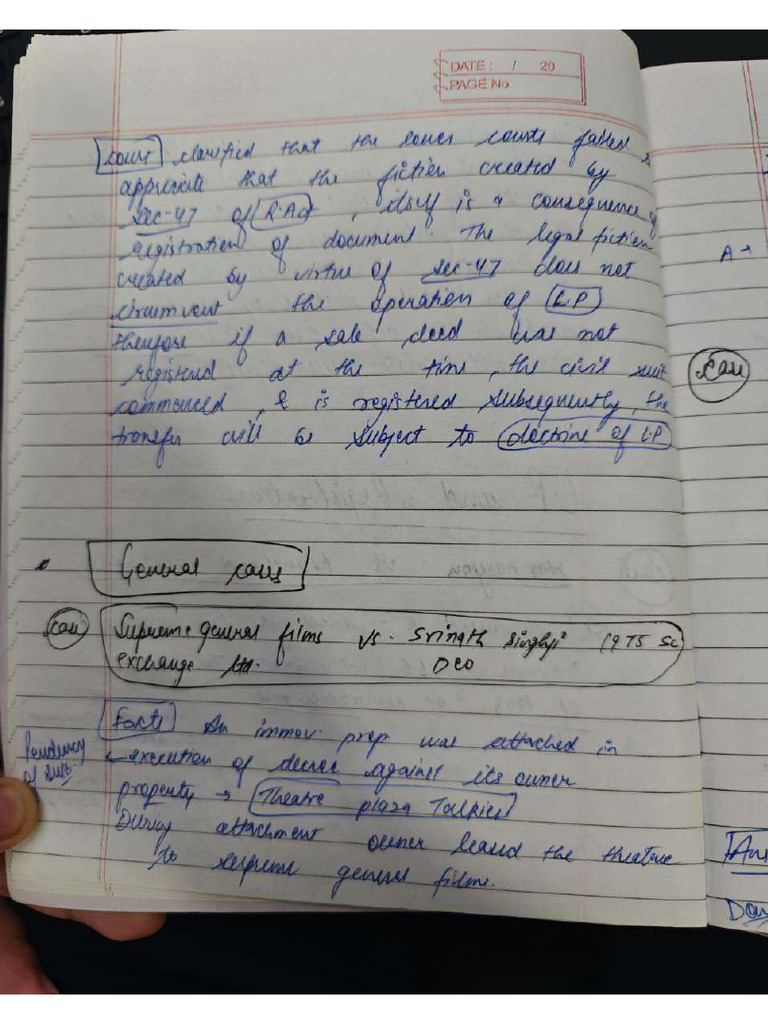 DATE: / 20
PAGE No
Court clarified that the lower courts failed to
appreciate that the fiction created by
Sec-47 of R.Act, itself is a consequence of
registration of document. The legal fiction
created by virtue of Sec-47 does not
circumvent the operation of L.P
therefore if a sale deed was not
registered at the time, the civil suit
commenced, & is registered subsequently, the
transfer will be subject to doctrine of L.P
General cases
case
Supreme general films vs. Srinath Singhji 1975 SC
exchange ltd. Deo
Facts An immov. prop was attached in
Pendency
of suit
execution of decree against its owner
property → Theatre plaza Talkies
During attachment owner leased the theatre
to supreme general films.
A →
case
Day